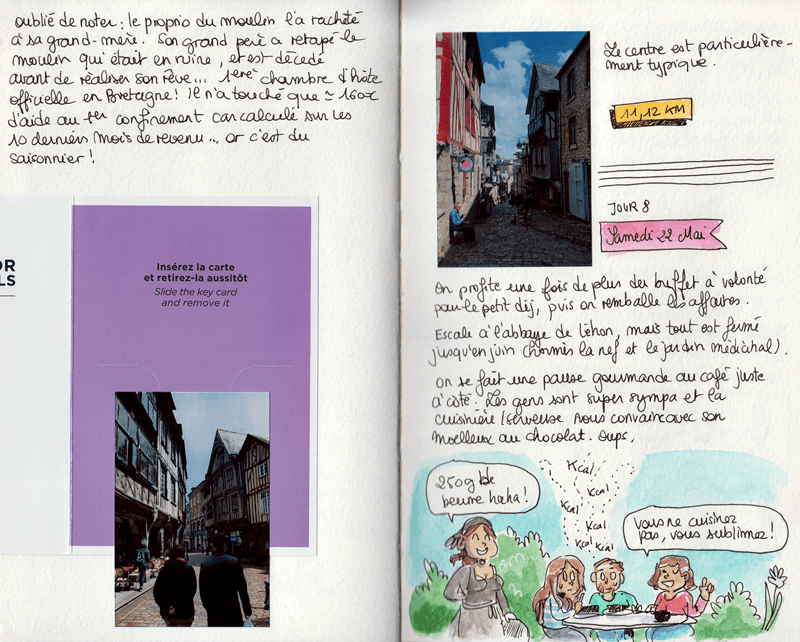 oublié de noter : le proprio du moulin l'a racheté
à sa grand-mère. Son grand père a retapé le
moulin qui était en ruine, et est décédé
avant de réaliser son rêve... 1ère chambre d'hôte
officielle en Bretagne! Il n'a touché que ≃ 160€
d'aide au 1er confinement car calculé sur les
10 derniers mois de revenu... or c'est du
saisonnier !
OR
LS
Insérez la carte
et retirez-la aussitôt
Slide the key card
and remove it
Le centre est particulière-
ment typique.
11,12 KM
JOUR 8
Samedi 22 Mai
On profite une fois de plus du buffet à volonté
pour le petit dej, puis on remballe les affaires.
Escale à l'abbaye de Léhon, mais tout est fermé
jusqu'en juin (hormis la nef et le jardin médiéval).
On se fait une pause gourmande au café juste
à côté. Les gens sont super sympa et la
cuisinière/serveuse nous convainc avec son
moelleux au chocolat. Oups.
250g de
beurre haha!
Kcal
Kcal
Kcal
Kcal
Kcal
Kcal
vous ne cuisinez
pas, vous sublimez !